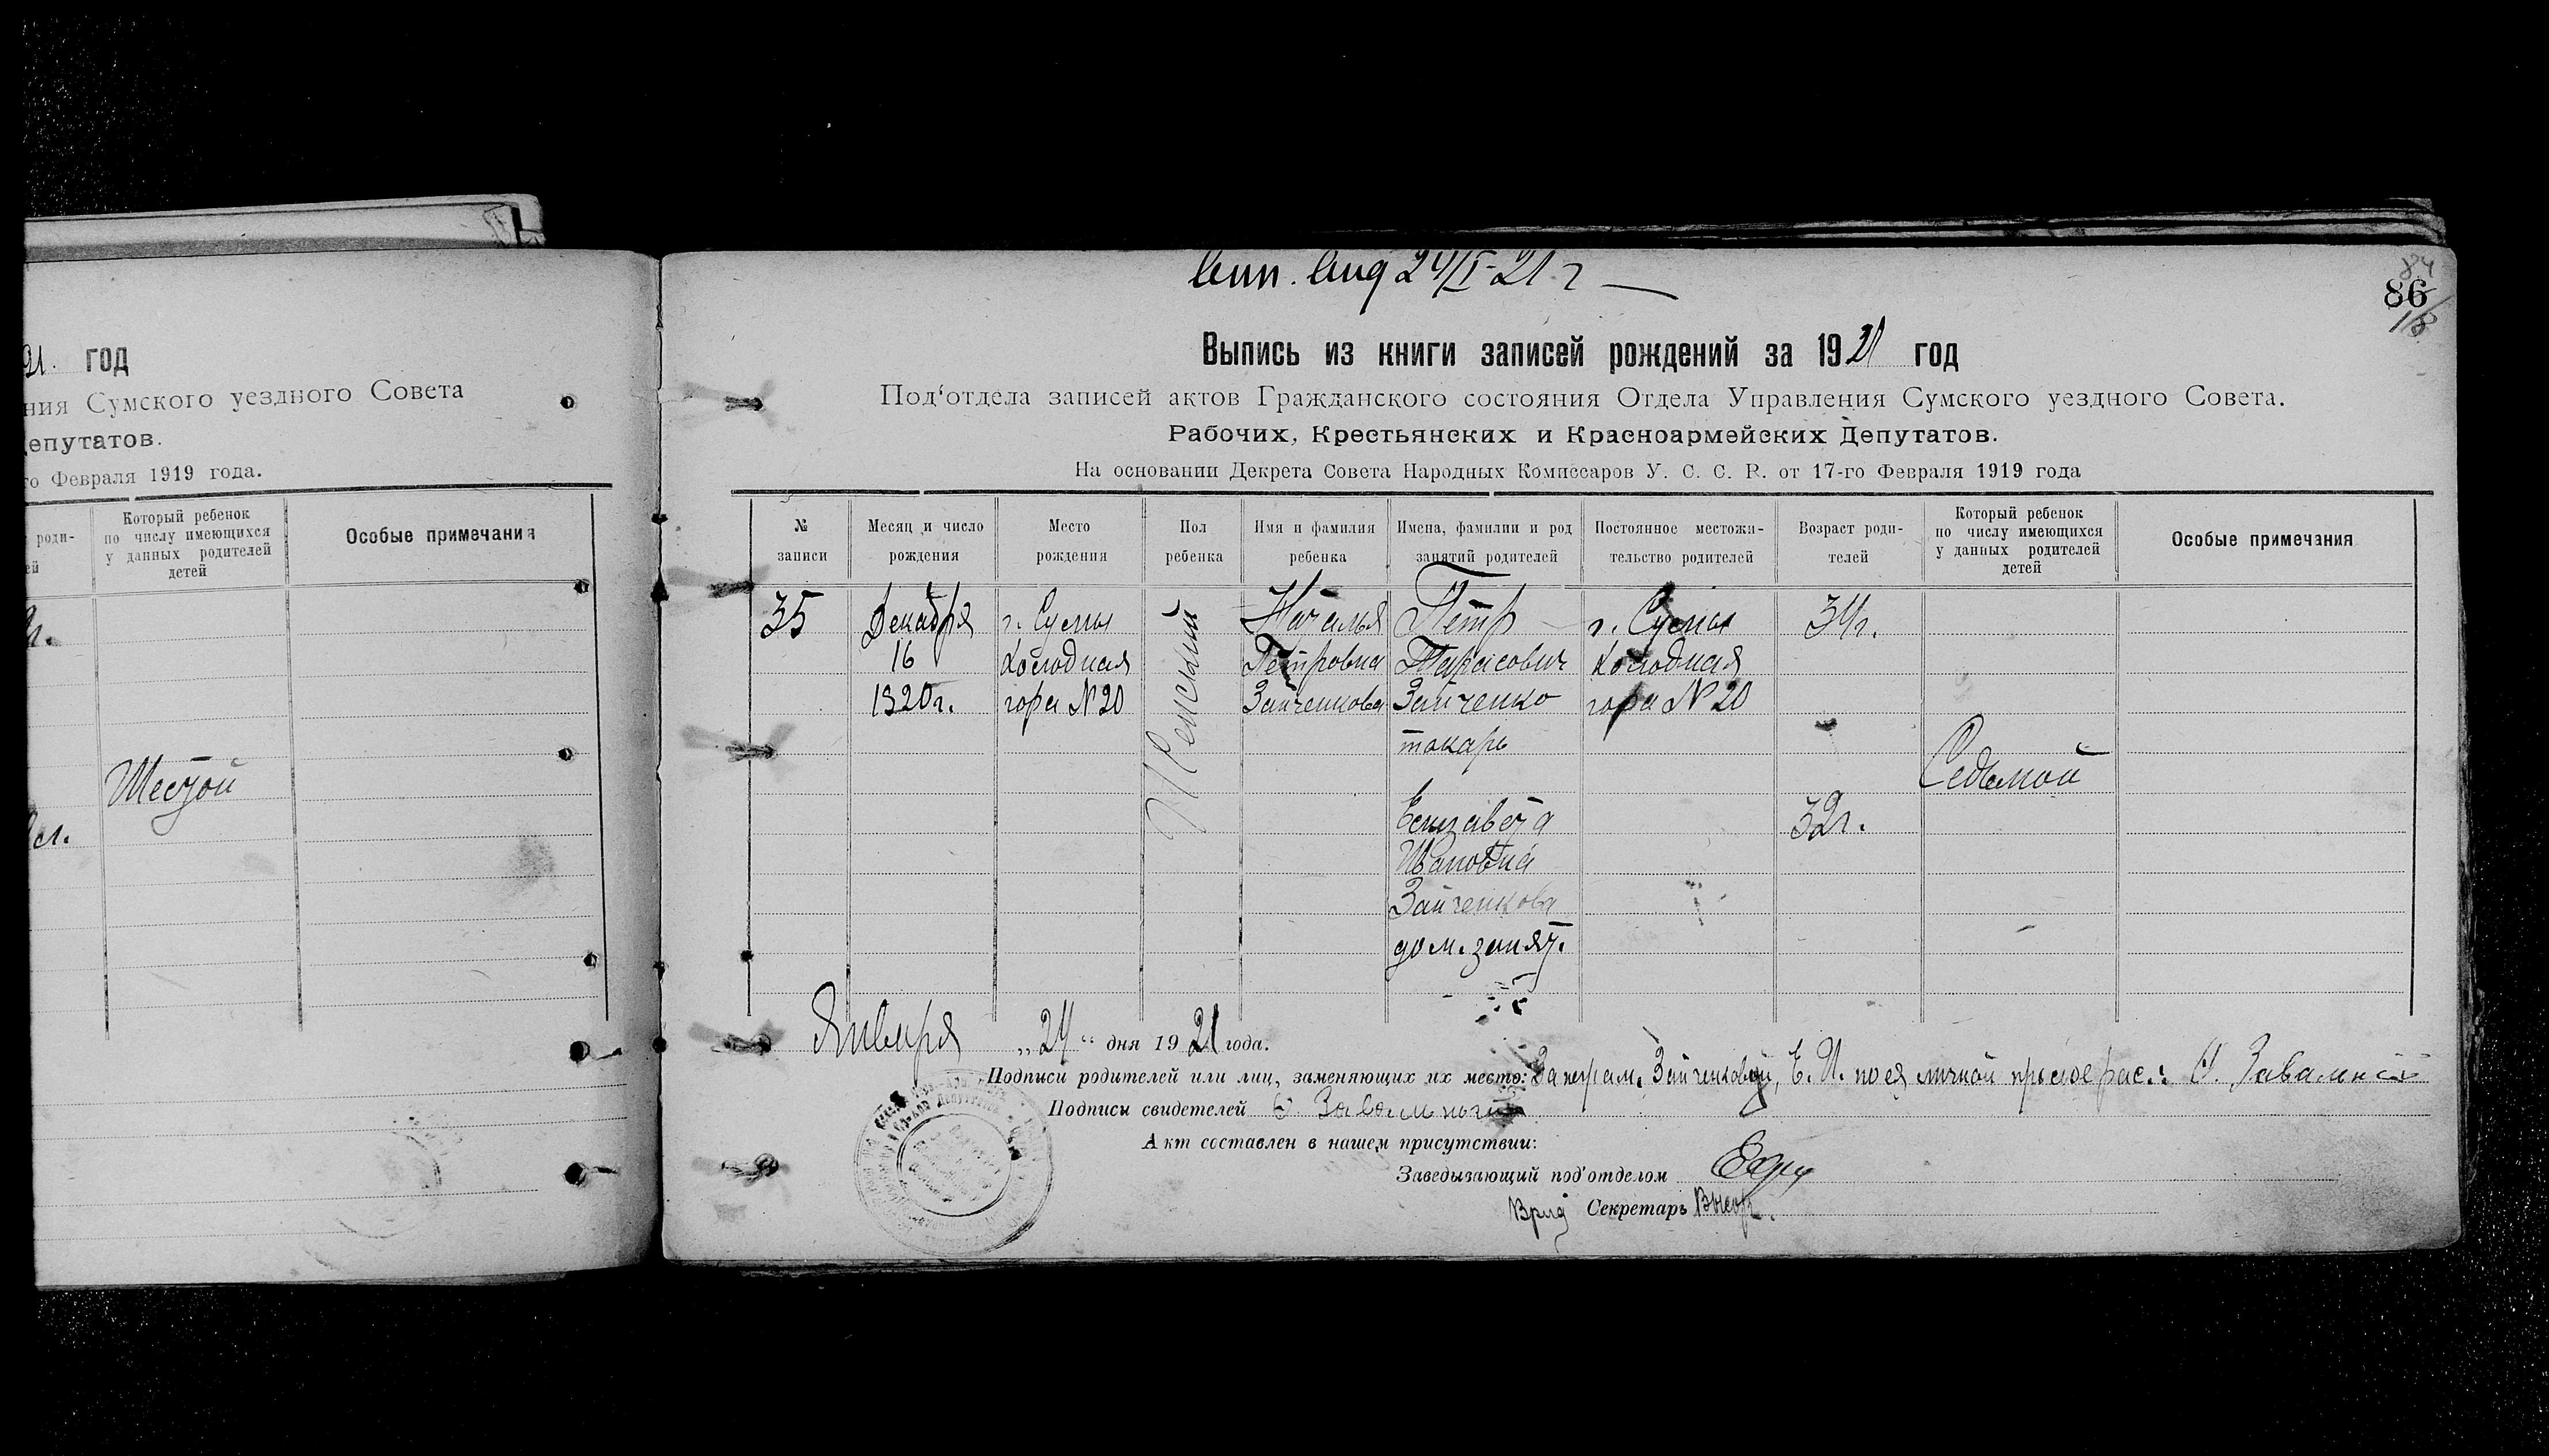 21. год
ния Сумского уездного Совета
депутатов.
го Февраля 1919 года.
роди-
ей
Который ребенок
по числу имеющихся
у данных родителей
детей
Особые примечания
Шестой
24/I-21 г
84
86
Выпись из книги записей рождений за 1921 год
Под‘отдела записей актов Гражданского состояния Отдела Управления Сумского уездного Совета.
Рабочих, Крестьянских и Красноармейских Депутатов.
На основании Декрета Совета Народных Комиссаров У. С. С. Р. от 17-го Февраля 1919 года
№
записи
Месяц и число
рождения
Место
рождения
Пол
ребенка
Имя и фамилия
ребенка
Имена, фамилии и род
занятий родителей
Постоянное местожи-
тельство родителей
Возраст роди-
телей
Который ребенок
по числу имеющихся
у данных родителей
детей
Особые примечания
35
Декабря
16
1920г.
г. Сумы
Холодная
гора №20
Женский
Наталья
Петровна
Зайченкова
Петр
Тарасович
Зайченко
токарь
г. Сумы
Холодная
гора №20
34г.
Елизавета
Ивановна
Зайченкова
дом. занят.
32г.
Седьмой
Января „24“ дня 1921 года.
Подписи родителей или лиц, заменяющих их место: За неграм. Зайченковой, Е. И. по ея личной просьбе рас.:
Подписи свидетелей
Акт составлен в нашем присутствии:
Заведывающий под‘отделом
Врид Секретарь